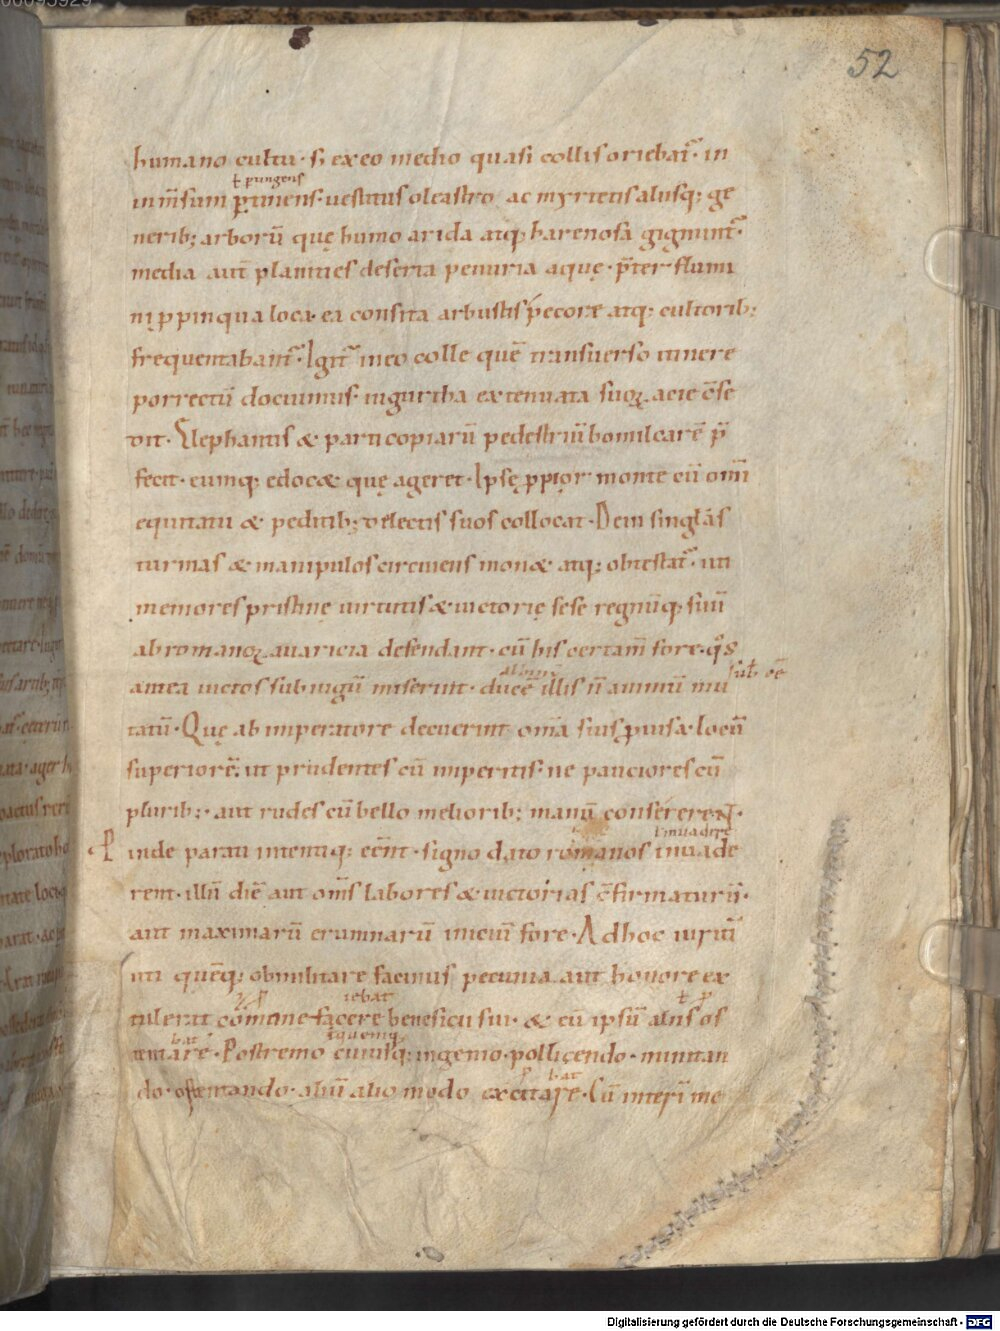 52
humano cultu · s; ex eo medio quasi collis oriebat̃ · in
ł pungens
in m̅sum ꝑtinens · uestitus oleastro ac myrtetis aliisq; ge
nerib; arborū quę humo arida atq; harenosa gignunt̃ ·
media aut̅ planities deserta penuria aquę · p̅ter flumi
ni ꝓpinqua loca · ea consita arbustis pecore atq; cultorib;
frequentabant̃ · Igit̃ in eo colle quē transuerso itinere
porrectū docuimus · iugurtha extenuata suoꝝ acie c̅se
dit · Elephantis & parti copiarū pedestriū bomilcarē p̅
fecit · eumq; edocæ quę ageret · Ipsę ꝓpior monte cū omi̅
equitatu & peditib; delectis suos collocat · Dein singl̅as
turmas & manipulos circuiens monæ atq; obtestat̃ · uti
memores pristinę uirtutis & uictorię sese regnūq; suū
ab romanoꝝ auaricia defendant · cū his certam̅ fore · q̊s
antea uictos sub iugū miserint · ducē illis n̅ animū mu
tatū · Quę ab imperatore decuerint om̅a suis ꝓuisa · locū
superiorē · ut prudentes cū imperitis · ne pauciores cū
plurib; · aut rudes cū bello meliorib; manū consererent ·
ł inuadere
inde parati intentiq; ee̅nt · signo dato romanos inuade
rent · illū diē aut om̅s labores & uictorias c̅firmaturū ·
aut maximarū erumnarū iniciū fore · Adhoc uiritī
uti quēq; ob militare facinus pecunia aut honore ex
iebat
tulerat co̅mone facere beneficii sui · & eū ipsū aliis os
bat
tentare · Postremo cuiusq; ingenio · pollicendo · minitan
bat
do · obtentando · aliū alio modo excitare · Cū interī me
Digitalisierung gefördert durch die Deutsche Forschungsgemeinschaft - DFG